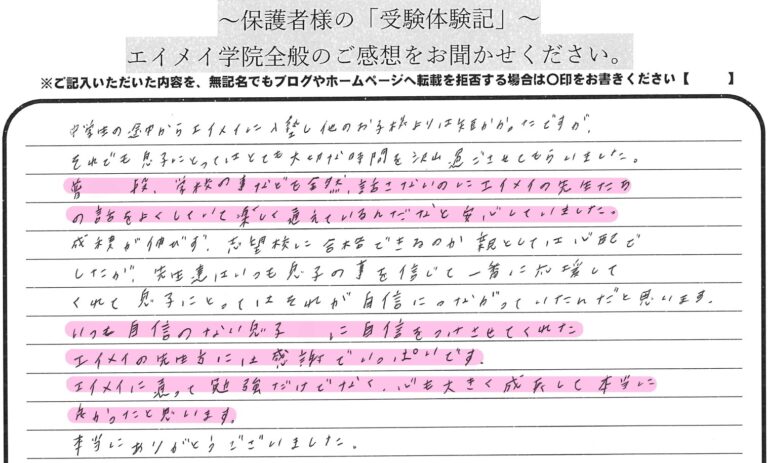 ～保護者様の「受験体験記」～
エイメイ学院全般のご感想をお聞かせください。
※ご記入いただいた内容を、無記名でもブログやホームページへ転載を拒否する場合は〇印をお書きください【　　】
中学生の途中からエイメイに入塾し他のお子様よりは短かかったですが、
それでも息子にとってはとても大切な時間を沢山過ごさせてもらいました。
普段、学校の事なども全然話さないのにエイメイの先生たち
の話をよくしていて楽しく通えているんだなと安心していました。
成績が伸びず、志望校に合格できるのか親としては心配で
したが、先生達はいつも息子の事を信じて一番に応援して
くれて息子にとってはそれが自信につながっていたんだと思います。
いつも自信のない息子　　に自信をつけさせてくれた
エイメイの先生方には感謝でいっぱいです。
エイメイに通って勉強だけでなく、心も大きく成長して本当に
良かったと思います。
本当にありがとうございました。